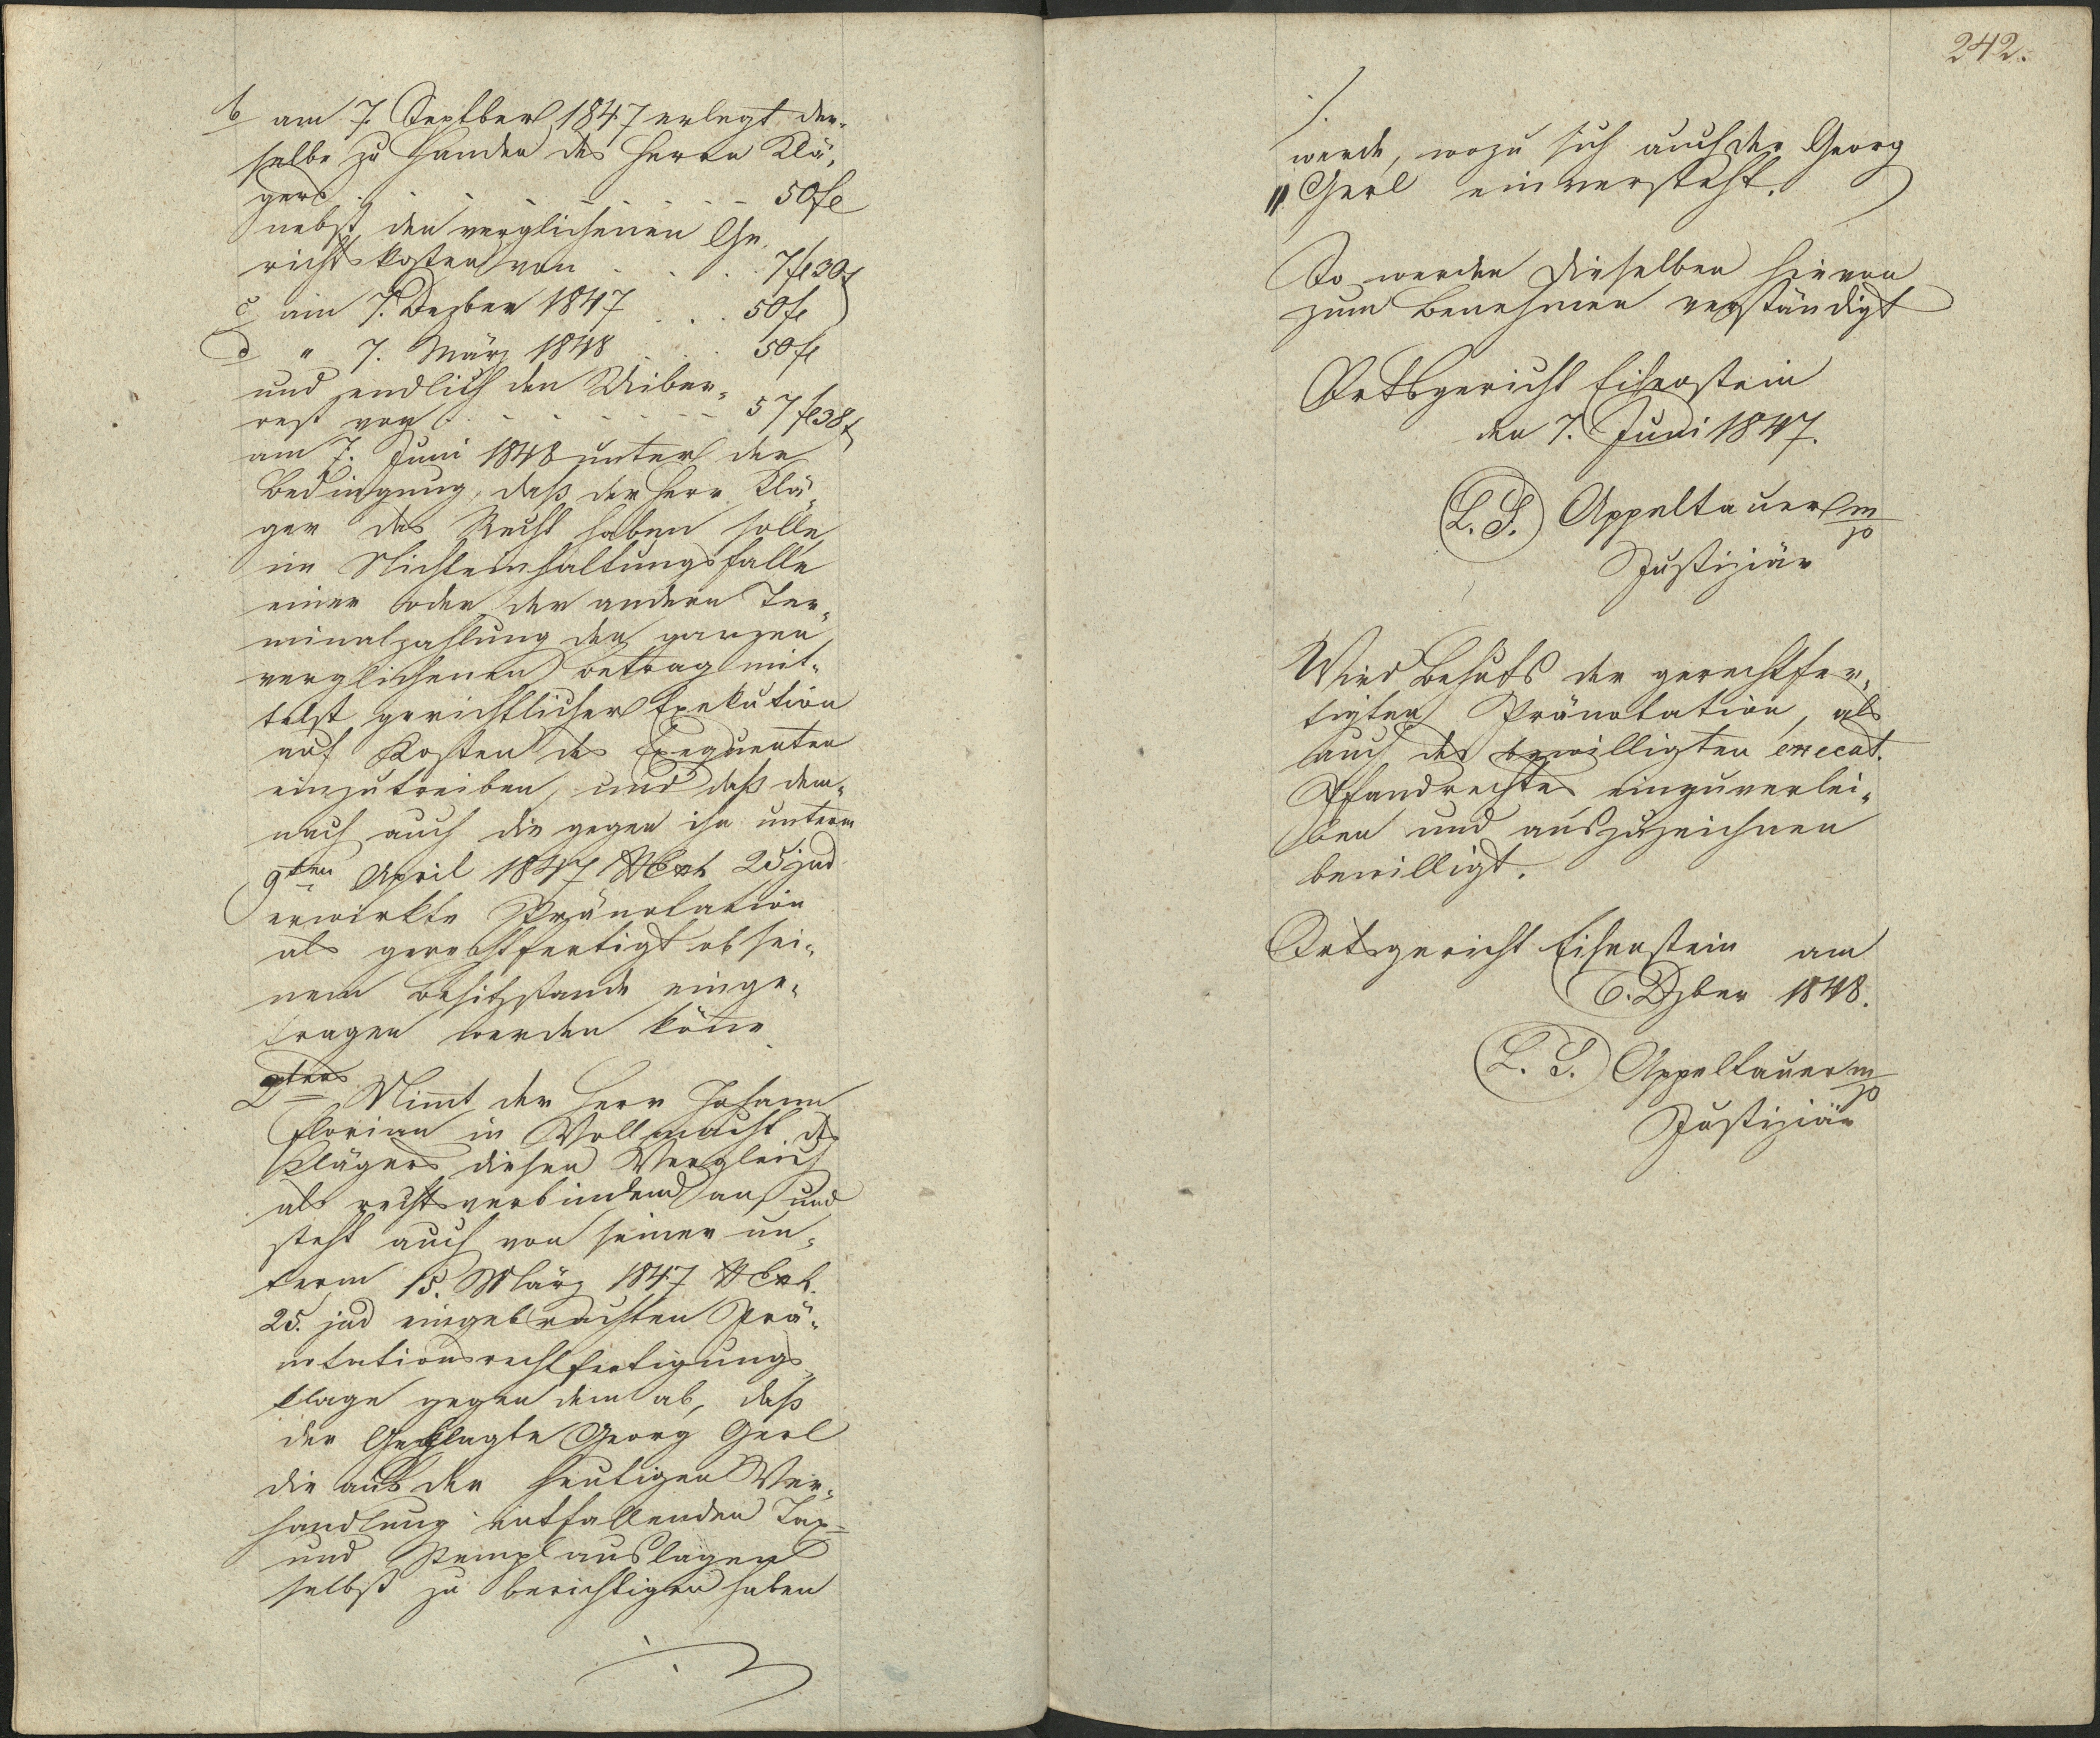 b am 7. Septber 1847 erlegt der-
selbe zu Handen des Herrn Klä-
gers . - - - - - - - 50 fl
nebst den verglichenen Ge-
richtskosten von . . . . 7 fl 30 x
c am 7. Dezber 1847 . . . 50 fl
d " 7. März 1848 . . . 50 fl
und endlich den Uiber-
rest von . - - - - - - 57 fl 38 x
am 7. Juni 1848 unter der
Bedingung, daß der Herr Klä-
ger das Recht haben solle,
im Nichteinhaltungsfalle
einer oder der andern Ter-
minalzahlung den ganzen
verglichenen Betrag mit-
telst gerichtlicher Exekution
auf Kosten des Exequenten
einzutreiben, und daß dem-
nach auch die gegen ihn unterm
9ten April 1847 25 jud
erwirkte Pränotation
als gerechtfertigt ob sei-
nem Besitzstande einge-
tragen werden köne.
2tens Nimt der Herr Johann
Florian in Vollmacht des
Klägers diesen Vergleich
als rechtsverbindend an, und
steht auch von seiner un-
term 15. März 1847
25. jud eingebrachten Prä-
notationsrechtfertigungs-
klage gegen dem ab, daß
der Geklagte Georg Gerl
die aus der heutigen Ver-
handlung entfallenden Tax-
und Stemplauslagen
selbst zu berichtigen haben
./.
242.
./.
werde, wozu sich auch der Georg
" Gerl einversteht.
So werden dieselben hievon
zum Benehmen verständigt
Ortsgericht Eisenstein
den 7. Juni 1847.
L. S. Appeltauer m/p
Justiziär
Wird Behufs der gerechtfer-
tigten Pränotation, als
auch des bewilligten execut.
Pfandrechtes einzuverlei-
ben und auszuzeichnen
bewilligt.
Ortsgericht Eisenstein am
6. Dzber 1848.
L. S. Appeltauer m/p
Justiziär